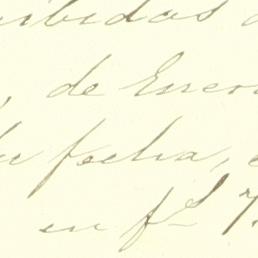 ibidas
, de Enero
fecha, e
en fs 7.